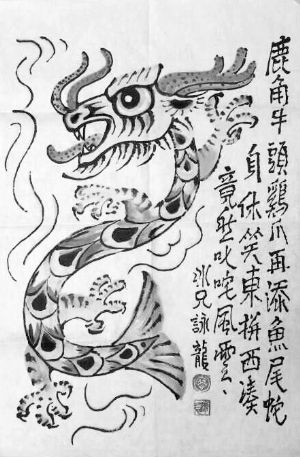 鹿角牛頭鷄爪再添魚尾蛇
身休笑東拼西湊
竟然叱咤風雲
冰兄詠龍